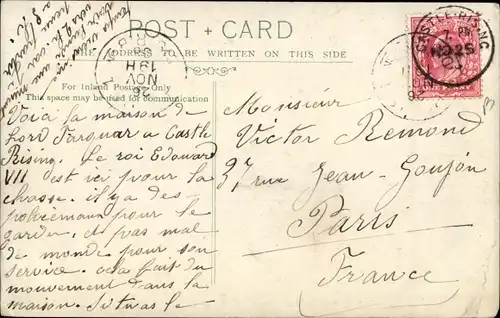 POST + CARD
THE ADDRESS TO BE WRITTEN ON THIS SIDE
For Inland Postage Only
This space may be used for communication
Voici la maison de
Lord Farquar a Castle
Rising. Le roi Edouard
VII est ici pour la
chasse. il y a des
policemans pour le
garder, et pas mal
de monde pour son
service. cela fait du
mouvement dans la
maison. Si tu as le
temps
Monsieur
Victor Remond
37, rue Jean-Goujon
Paris
France
NOV